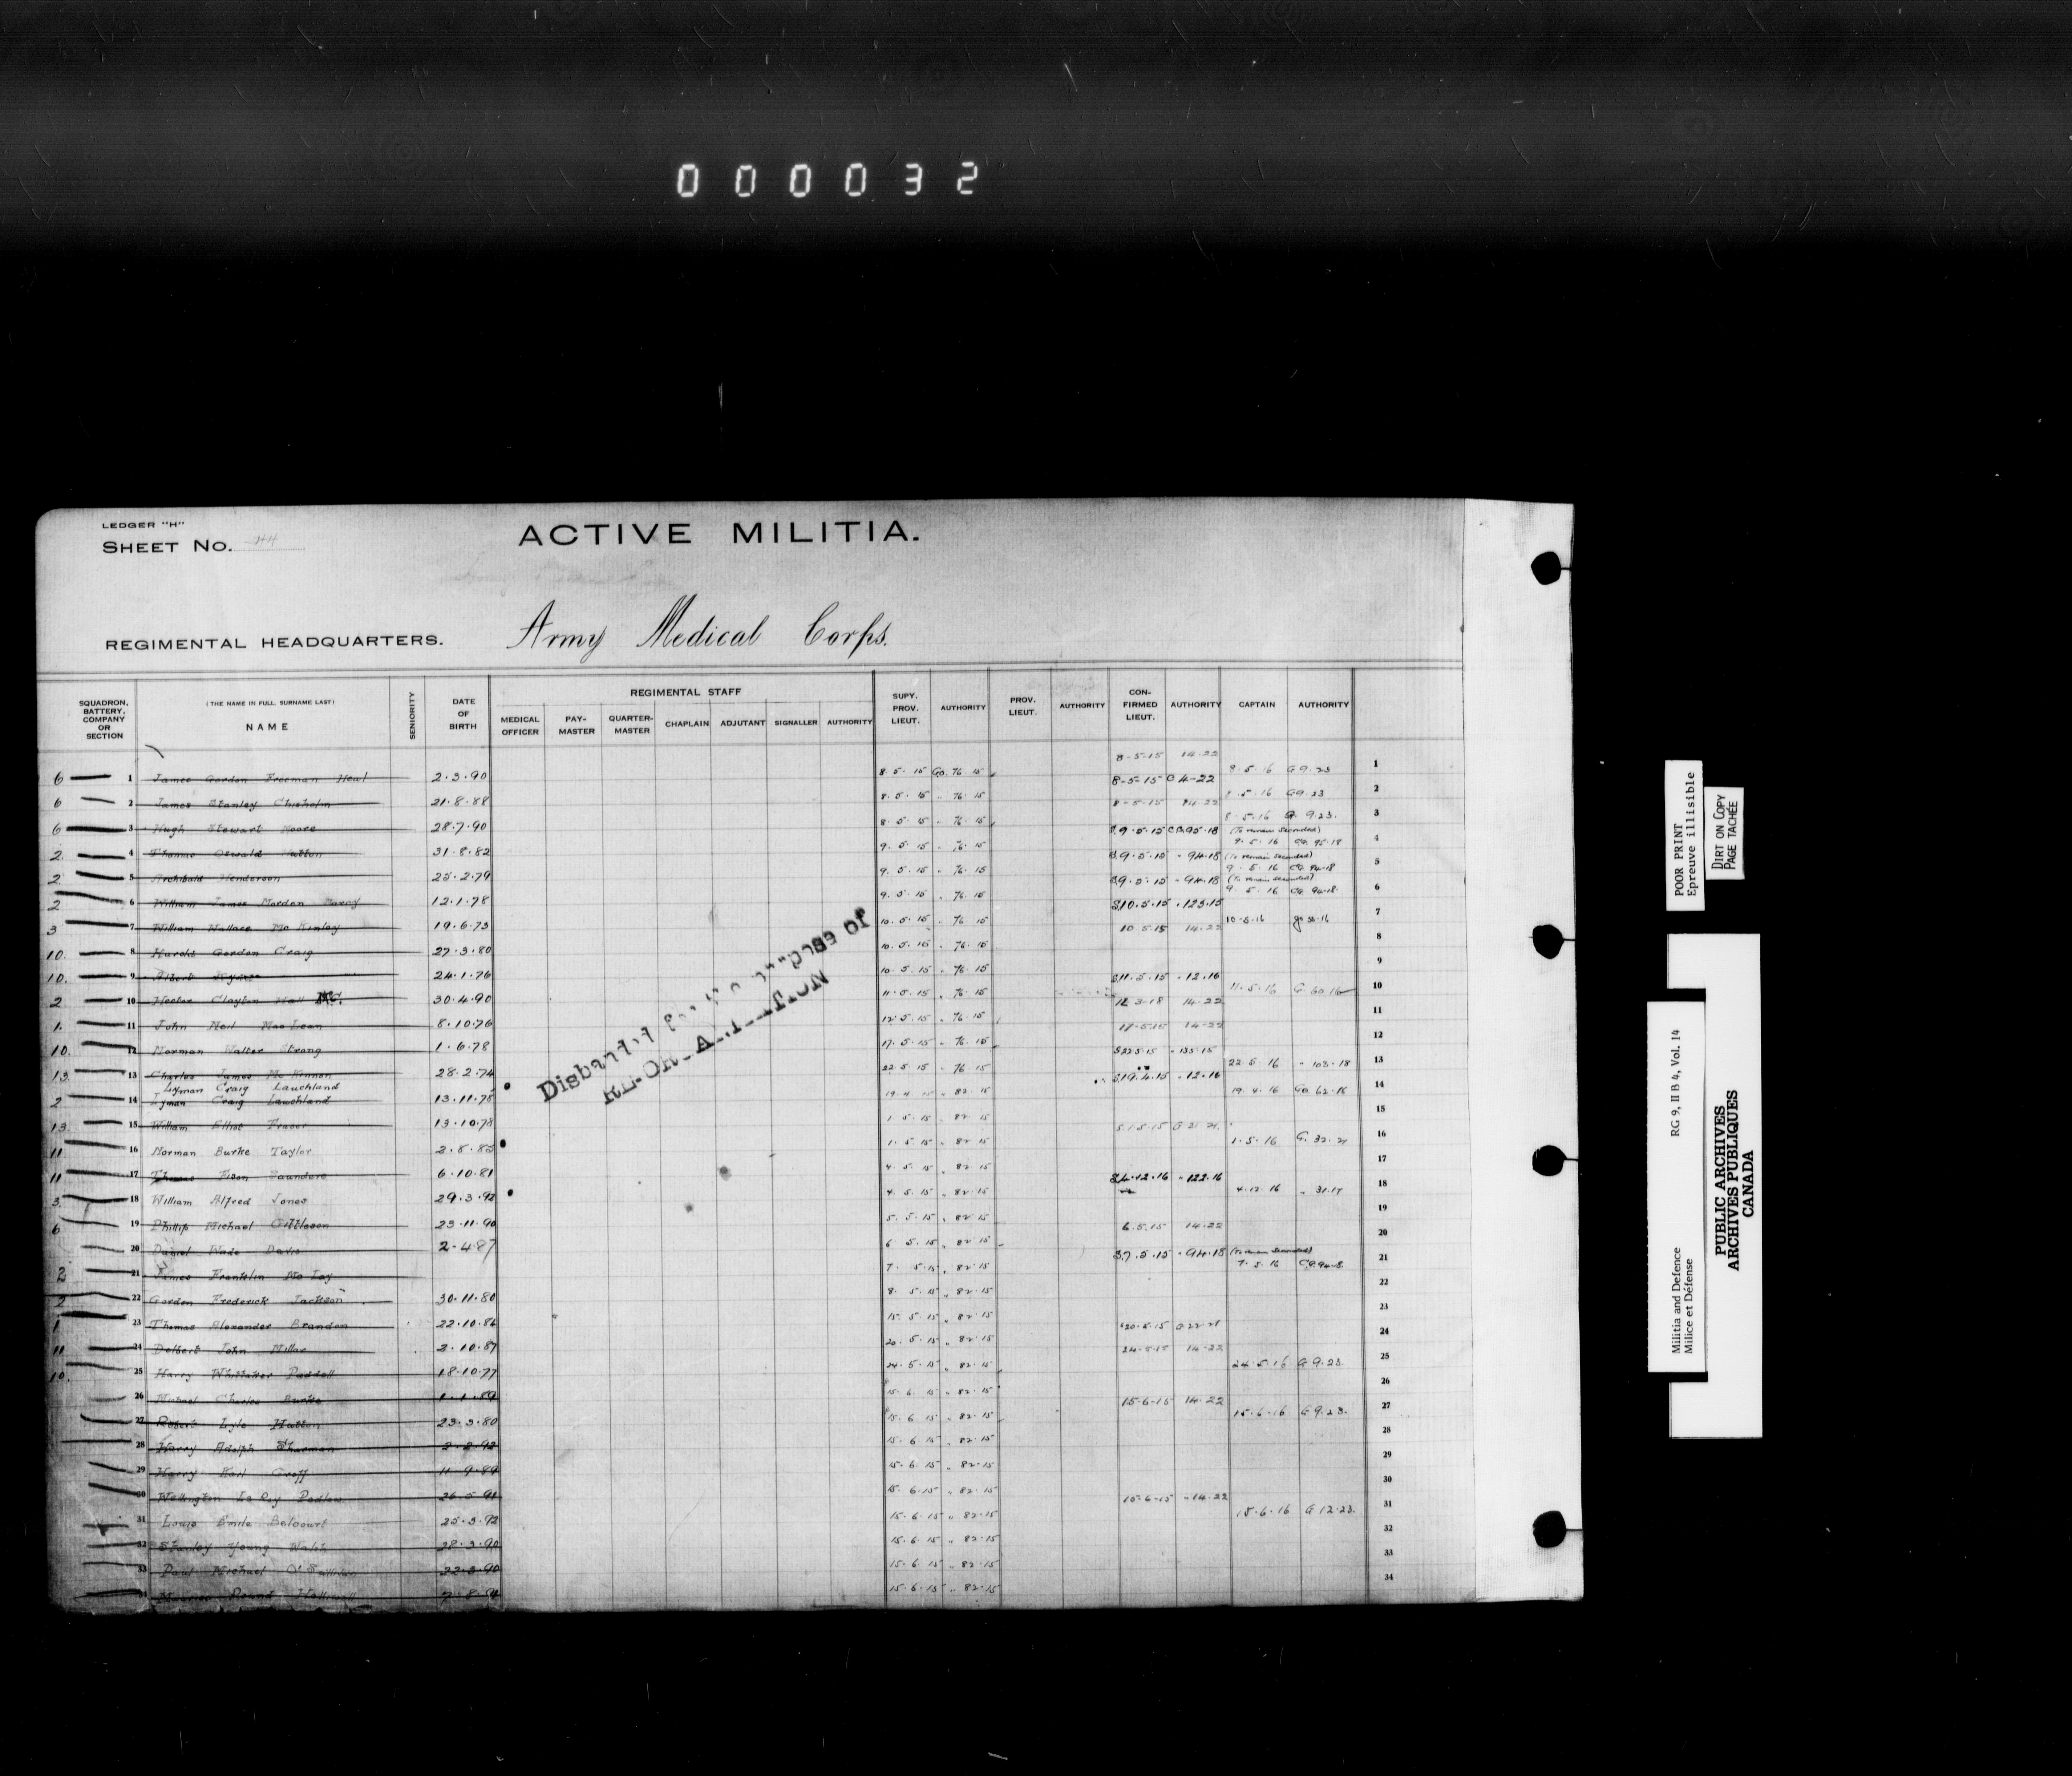 000032
LEDGER "H"
SHEET No. 44
ACTIVE MILITIA.
REGIMENTAL HEADQUARTERS. Army Medical Corps.
SQUADRON, BATTERY, COMPANY OR SECTION
(THE NAME IN FULL. SURNAME LAST) NAME
SENIORITY
DATE OF BIRTH
REGIMENTAL STAFF
MEDICAL OFFICER PAY-MASTER QUARTER-MASTER CHAPLAIN ADJUTANT SIGNALLER AUTHORITY
SUPY. PROV. LIEUT. AUTHORITY PROV. LIEUT. AUTHORITY CON-FIRMED LIEUT. AUTHORITY CAPTAIN AUTHORITY
8-5-15 14-22
6 1 James Gordon Freeman Heal 2.3.90 8.5.15 GO. 76.15 8-5-15 G 14-22 8.5.16 G 9.23 1
6 2 James Stanley Chisholm 21.8.88 8.5.15 " 76.15 8-5-15 14-22 8.5.16 G 9.23 2
6 3 Hugh Stewart Moore 28.7.90 8.5.15 " 76.15 8.5.16 G. 9 23. 3
2 4 Thomas Oswald Hutton 31.8.82 9.5.15 " 76.15 9.5.15 95.18 (To remain Seconded) 9.5.16 95.18 4
2 5 Archibald Henderson 25.2.79 9.5.15 " 76.15 9.5.15 " 94.18 (To remain Seconded) 9.5.16 94.18 5
2 6 William James Morden Marcy 12.1.78 9.5.15 " 76.15 9.5.15 " 94.18 (To remain Seconded) 9.5.16 94.18 6
3 7 William Wallace McKinley 19.6.73 10.5.15 " 76.15 10.5.15 " 123.15 10.5.16 7
10. 8 Harold Gordon Craig 27.3.80 10.5.15 " 76.15 10.5.15 14.22 8
10. 9 Albert 24.1.76 10.5.15 " 76.15 9
2 10 Hector Clayton Hall M.C. 30.4.90 11.5.15 " 76.15 11.5.15 " 12.16 11.5.16 G. 60.16 10
1. 11 John Neil MacLean 8.10.76 12.5.15 " 76.15 14.22 11
10. 12 Norman Walter Strong 1.6.78 17.5.15 " 76.15 17-5-15 14-22 12
13. 13 Charles James McKinnon 28.2.74 22.5.15 " 76.15 22.5.15 " 135.15 22.5.16 " 103.18 13
Lyman Craig Lauchland
2 14 Lyman Craig Lauchland 13.11.78 19.4.15 " 82.15 19.4.15 " 12.16 19.4.16 GO. 62.16 14
13. 15 William Elliot Fraser 13.10.78 1.5.15 " 82.15 15
11 16 Norman Burke Taylor 2.8.85 1.5.15 " 82.15 1.5.16 G. 32.21 16
11 17 Thomas Saunders 6.10.81 4.5.15 " 82.15 17
3. 18 William Alfred Jones 29.3.92 4.5.15 " 82.15 4.12.16 " 122.16 4.12.16 " 31.17 18
6 19 Phillip Michael Gittleson 23.11.90 5.5.15 " 82.15 19
20 Daniel Wade Davis 2-4-87 6.5.15 " 82.15 6.5.15 14.22 20
2 21 James Franklin McIay 7.5.15 " 82.15 7.5.15 " 94.18 (To remain Seconded) 7.5.16 94.18 21
2 22 Gordon Frederick Jackson 30.11.80 8.5.15 " 82.15 22
1 23 Thomas Alexander Brandon 22.10.86 15.5.15 " 82.15 23
11 24 Delbert John Millar 3.10.87 20.5.15 " 82.15 20.5.15 24
10. 25 Harry Whittaker Paddell 18.10.77 24.5.15 " 82.15 24-5-15 14-22 24.5.16 G 9.23. 25
26 Michael Charles Burke 1.1.89 15.6.15 " 82.15 26
27 Robert Lyle Hutton 23.3.80 15.6.15 " 82.15 15-6-15 14-22 15.6.16 G 9.23. 27
28 Harry Adolph Sharman 2.2.92 15.6.15 " 82.15 28
29 Harry Karl Groff 11.9.89 15.6.15 " 82.15 29
30 Wellington LeRoy Pedlow 26.5.91 15.6.15 " 82.15 30
31 Louis Emile Belcourt 25.3.92 15.6.15 " 82.15 15-6-15 " 14.22 15.6.16 G 12.23. 31
32 Stanley Young Walsh 28.3.90 15.6.15 " 82.15 32
33 Paul Michael O'Sullivan 22.3.90 15.6.15 " 82.15 33
34 Round 7.8.94 15.6.15 " 82.15 34
Disbanded
POOR PRINT
Epreuve illisible
DIRT ON COPY
PAGE TACHÉE
RG 9, II B 4, Vol. 14
Militia and Defence
Milice et Défense
PUBLIC ARCHIVES
ARCHIVES PUBLIQUES
CANADA